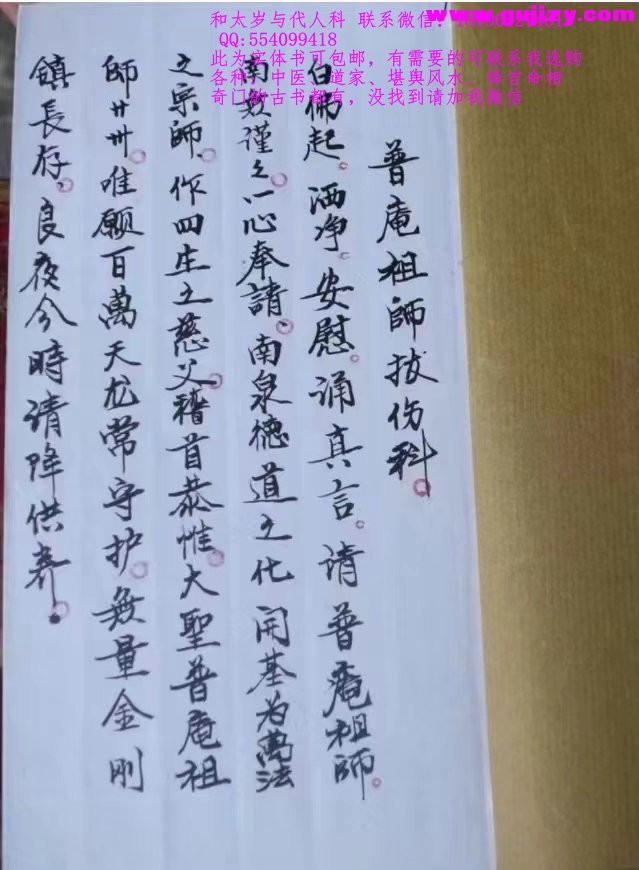 www.gujizy.com
和太岁与代人科 联系微信:
QQ:554099418
此为实体书可包邮，有需要的可联系我选购
各种 中医 道家、堪舆风水 择吉命相
奇门的古书都有，没找到请加我微信
普庵祖師拔伤科。
白佛起。洒净。安慰。诵真言。请普庵祖師。
南 謹之。一心奉請。南泉德道之化 開基为萬法
之宗師。作四生之慈父。稽首恭惟。大聖普庵祖
師廿卅。唯願百萬天尨常守护。無量金刚
鎮長存。良夜今時请降供养。